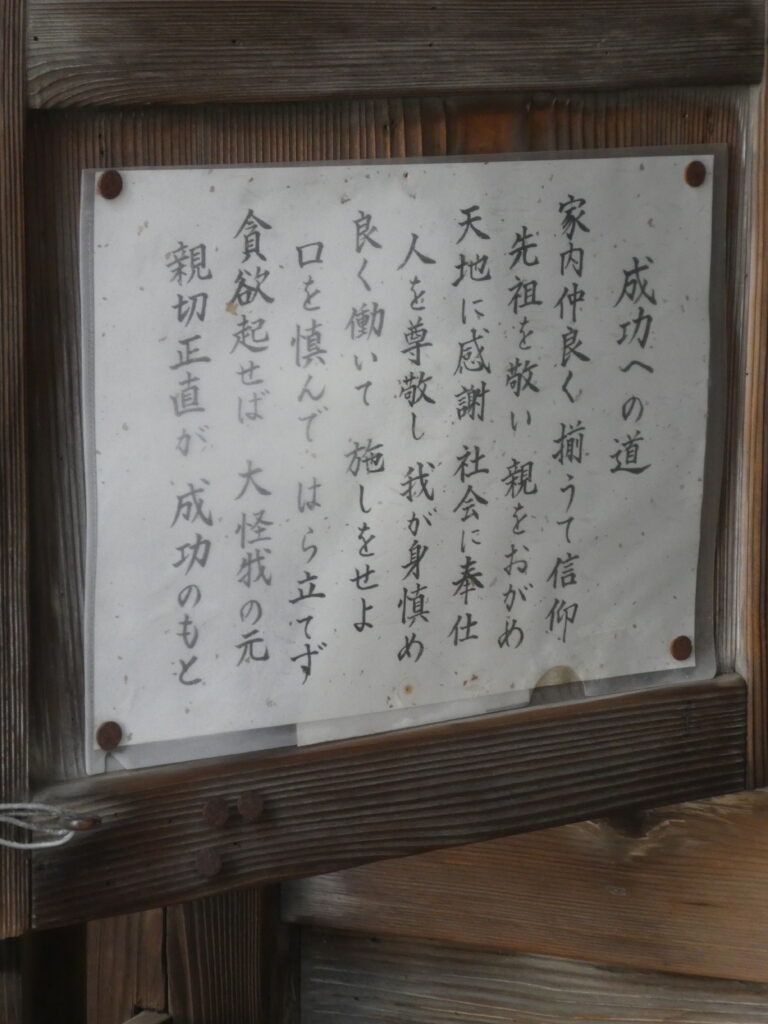 成功への道
家内仲良く 揃うて信仰
先祖を敬い 親をおがめ
天地に感謝 社会に奉仕
人を尊敬し 我が身慎め
良く働いて 施しをせよ
口を慎んで はら立てず
貪欲起せば 大怪我の元
親切正直が 成功のもと